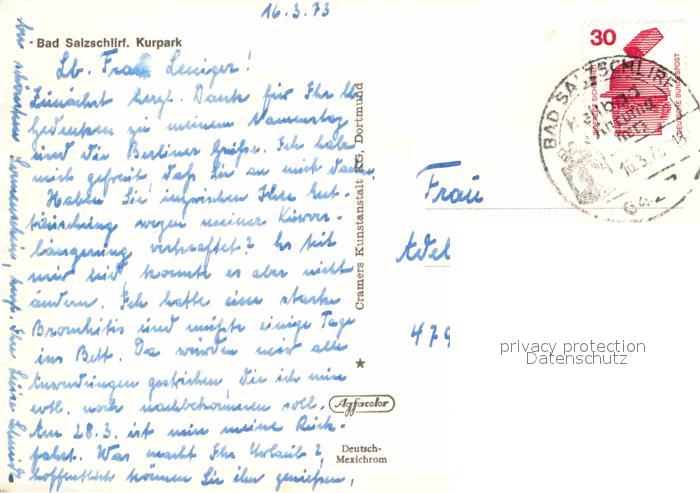 16.3.73
Bad Salzschlirf. Kurpark
Lb. Frau Leniger!
Zunächst herzl. Dank für Ihr lb.
Gedenken zu meinem Namenstag
und die Berliner Grüße. Ich habe
mich gefreut daß Sie an mich dachten
Haben Sie inzwischen Ihre Ent-
täuschung wegen meiner Kurver-
längerung verkraftet? Es tut
mir leid, konnte es aber nicht
ändern. Ich hatte eine starke
Bronchitis und mußte einige Tage
ins Bett. Da wurden mir alle
Anwendungen gestrichen, die ich nun
evtl. noch nachbekommen soll.
Am 28.3. ist nun meine Rück-
fahrt. Was macht Ihr Urlaub?,
hoffentlich können Sie ihn genießen,
bei schönstem Sonnenschein, herzl. Ihre Luise Schmidt
Cramers Kunstanstalt KG, Dortmund
Agfacolor
Deutsch-
Mexichrom
30
DEUTSCHE BUNDESPOST
BAD SALZSCHLIRF
16.3.73-18
Frau
Adel
479
privacy protection
Datenschutz